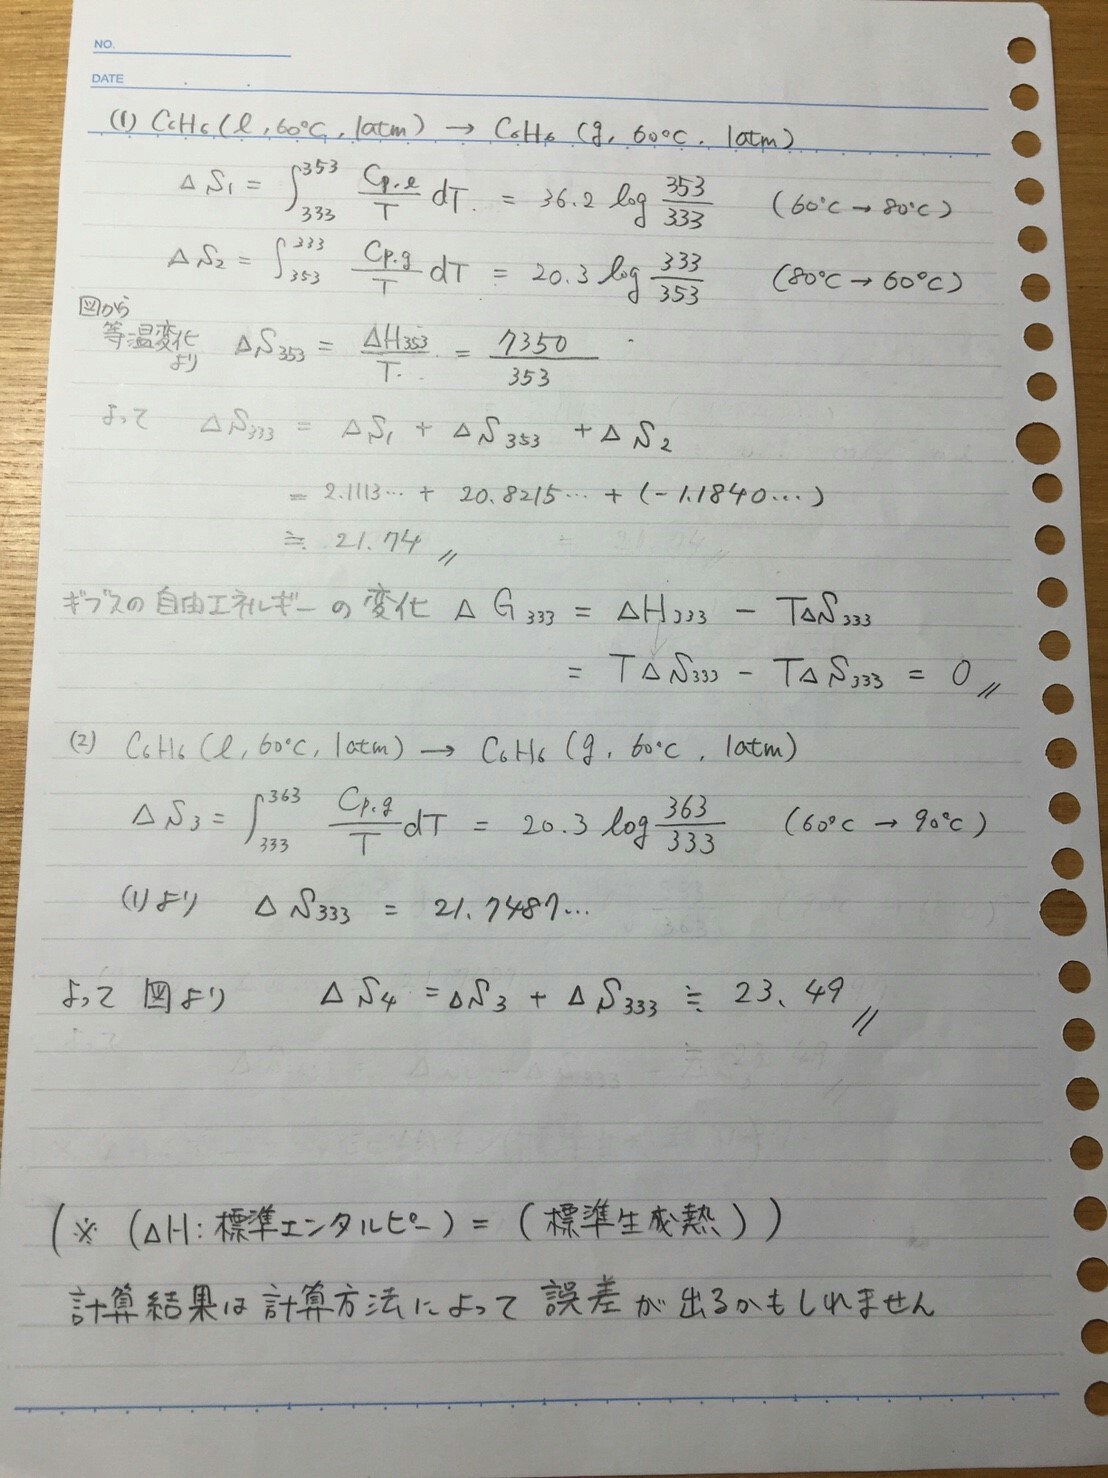 NO.
DATE
(1) C₆H₆(l, 60℃, 1atm) → C₆H₆(g, 60℃, 1atm)
ΔS₁ = ∫₃₃₃³⁵³ Cp.l/T dT = 36.2 log 353/333 (60℃ → 80℃)
ΔS₂ = ∫₃₅₃³³³ Cp.g/T dT = 20.3 log 333/353 (80℃ → 60℃)
図から
等温変化より ΔS₃₅₃ = ΔH₃₅₃/T = 7350/353
よって ΔS₃₃₃ = ΔS₁ + ΔS₃₅₃ + ΔS₂
= 2.1113… + 20.8215… + (-1.1840…)
≒ 21.74
ギブスの自由エネルギーの変化 ΔG₃₃₃ = ΔH₃₃₃ - TΔS₃₃₃
= TΔS₃₃₃ - TΔS₃₃₃ = 0
(2) C₆H₆(l, 60℃, 1atm) → C₆H₆(g, 60℃, 1atm)
ΔS₃ = ∫₃₃₃³⁶³ Cp.g/T dT = 20.3 log 363/333 (60℃ → 90℃)
(1)より ΔS₃₃₃ = 21.7487…
よって 図より ΔS₄ = ΔS₃ + ΔS₃₃₃ ≒ 23.49
(※ (ΔH:標準エンタルピー) = (標準生成熱))
計算結果は計算方法によって誤差が出るかもしれません